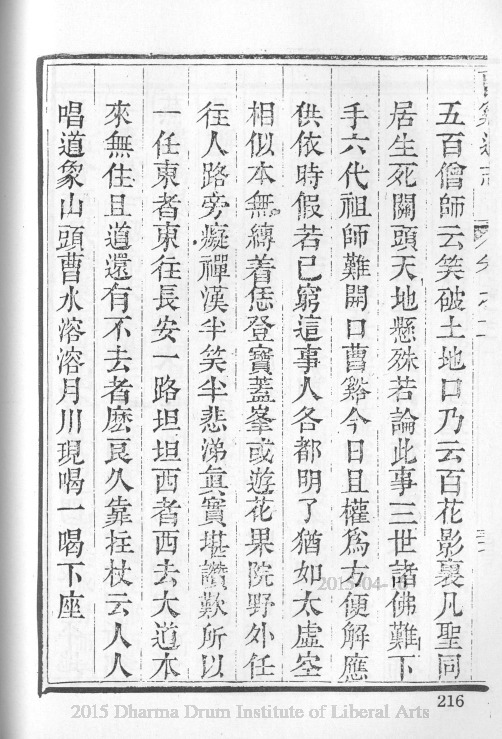 五百僧師云笑破土地口乃云百花影裏凡聖同
居生死關頭天地懸殊若論此事三世諸佛難下
手六代祖師難開口曹谿今日且權爲方便解應
供依時假若已窮這事人各都明了猶如太虛空
相似本無縛着恁登寶蓋峯或遊花果院野外任
往人路旁癡禪漢半笑半悲涕眞實堪讚歎所以
一任東者東往長安一路坦坦西者西去大道本
來無住且道還有不去者麼良久靠拄杖云人人
唱道象山頭曹水溶溶月川現喝一喝下座
216
2015 Dharma Drum Institute of Liberal Arts